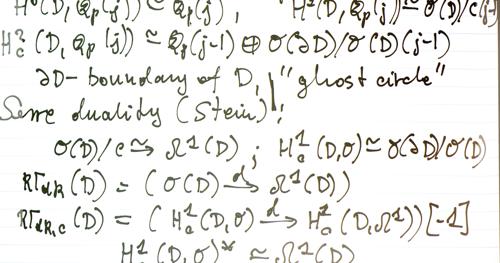 H⁰(D, ℚp(j)) ≃ ℚp(j), H¹(D, ℚp(j)) ≃ O(D)/C(j-1)
H²c(D, ℚp(j)) ≃ ℚp(j-1) ⊕ O(∂D)/O(D)(j-1)
∂D - boundary of D, "ghost circle"
Serre duality (Stein):
O(D)/C ⥲ Ω¹(D) ; H¹c(D,O) ≃ O(∂D)/O(D)
RΓdR(D) = (O(D) →d Ω¹(D))
RΓdR,c(D) = (H¹c(D,O) →d H¹c(D,Ω¹))[-1]
H¹c(D,O)* ≃ Ω¹(D)